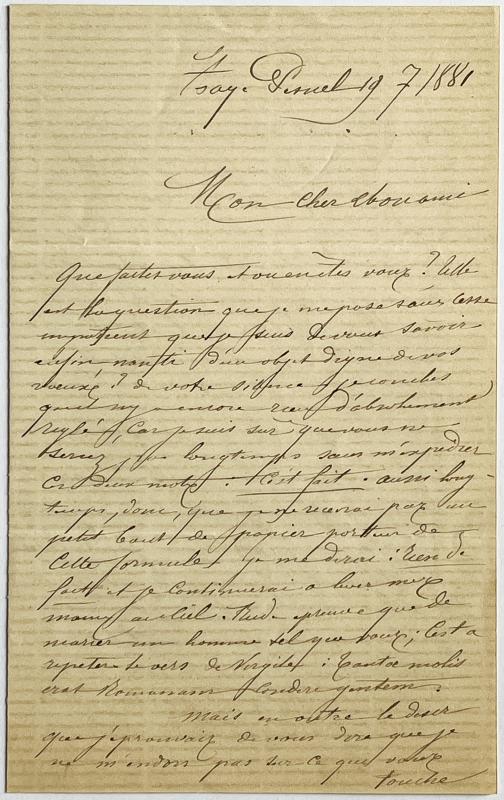 19 7/1881
Mon cher et bon ami
Que faites vous et ou en êtes vous? Telle
est la question que je me pose sans cesse
impatient que je suis de vous savoir
enfin nanti d'un objet digne de vos
vœux? de votre silence je conclus
qu'il n'y a encore rien d'absolument
reglé, car je suis sur que vous ne
seriez pas longtemps sans m'expédier
ces deux mots: C'est fait. aussi long-
temps, donc, que je ne recevrai pas un
petit bout de papier porteur de
cette formule je me dirai: rien de
fait et je continuerai a lever mes
mains au ciel. Rude epreuve que de
marier un homme tel que vous; c'est a
repeter le vers de Virgile: Tantae molis
erat Romanam condere gentem.
Mais en outre le desir
que j'éprouvais de vous dire que je
ne m'endors pas sur ce qui vous
touche